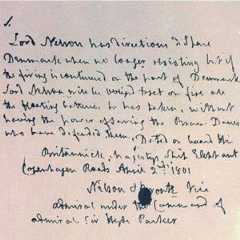 Lord Nelson has directions to spare
Denmark when no longer resisting but if
the firing is continued on the part of Denmark
Lord Nelson will be obliged to set on fire all
the floating batteries he has taken, without
having the power of saving the Brave Danes
who have defended them. Dated on board the
Britannick Majestys Ship Elephant
Copenhagen Roads April 2nd 1801
Nelson & Bronte Vice
Admiral under the Command of
Admiral Sir Hyde Parker